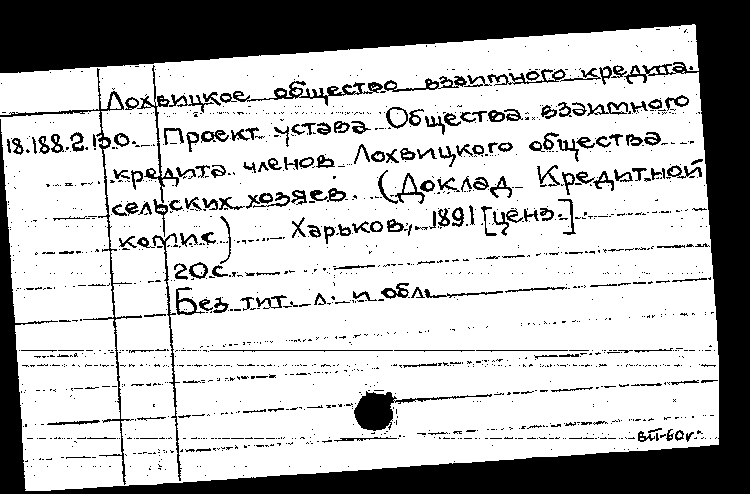 Лохвицкое общество взаимного кредита.
18.188.2.130. Проект устава Общества взаимного
кредита членов Лохвицкого общества
сельских хозяев. (Доклад Кредитной
комис) Харьков, 1891 [ценз.].
20с.
Без тит. л. и обл.